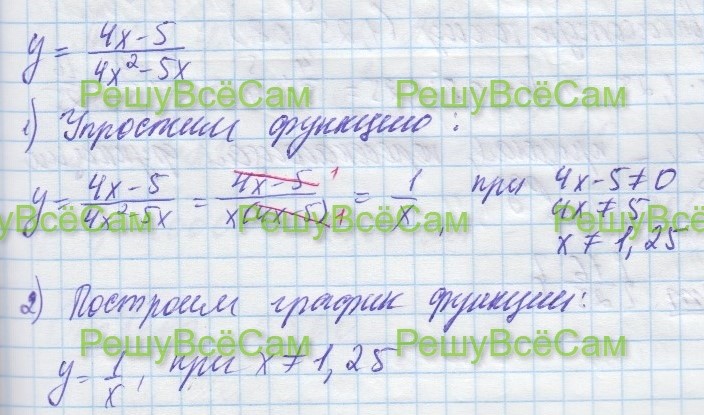 y = 4x-5 / 4x²-5x
РешуВсёСам РешуВсёСам
1) Упростим функцию:
y = 4x-5 / 4x²-5x = 4x-5 1 / x(4x-5) 1 = 1 / x , при 4x-5≠0
4x≠5
x≠1,25
РешуВсёСам РешуВсёСам
2) Построим график функции:
РешуВсёСам РешуВсёСам
y = 1 / x , при x≠1,25